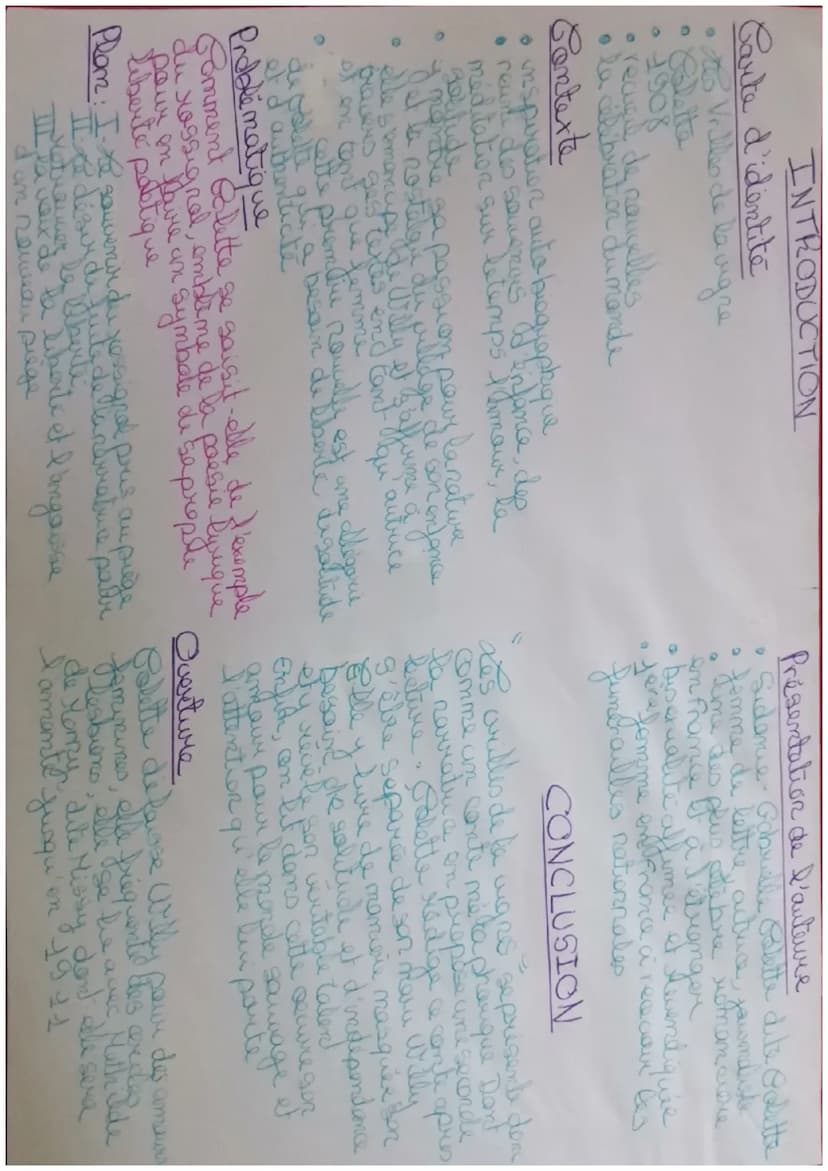 INTRODUCTION
Carte d'identité
• Les Vrilles de la vigne
• Colette
• 1908
• recueil de nouvelles
• la célébration du monde
Contexte
• inspiration autobiographique
• récit des souvenirs d'enfance, des
méditation sur le temps, l'amour, la
solitude
• y montre sa passion pour la nature
et la nostalgie du village de son enfance
• elle s'émancipe de Willy et s'affirme à
travers ses textes en tant qu'autrice
et en tant que femme
• cette première nouvelle est une allégorie
de Colette qui a besoin de liberté, de solitude
et d'authenticité
Problématique
Comment Colette se saisit-elle de l'exemple
du rossignol, emblème de la poésie lyrique
pour en faire un symbole de sa propre
liberté poétique
Plan : I - Le souvenir du rossignol pris au piège
II - Le désir de fuite de la narratrice pour
retrouver la liberté
III - La voix de la liberté et l'angoisse
d'un nouveau piège
Présentation de l'auteure
• Sidonie-Gabrielle Colette dite Colette
• femme de lettre, actrice, journaliste
• une des plus célèbre romancière
en France et à l'étranger
• personnalité affirmée et
• 1ère femme en France à recevoir les
funérailles nationales
CONCLUSION
"Les vrilles de la vigne" se présente donc
comme un conte métaphorique dont
la narratrice en propose une seconde
lecture. Colette rédige ce conte après
s'être séparée de son mari Willy
Elle y livre de manière masquée son
besoin de solitude et d'indépendance
et y révèle son véritable talent
Enfin, on lit dans cette oeuvre son
amour pour le monde sauvage et
l'attention qu'elle leur porte
Ouverture
Colette délaisse Willy pour des amours
féminines, elle fréquente des cercles
lesbiens, elle se lie avec Mathilde
de Morny, dite Missy dont elle sera
l'amante jusqu'en 1911